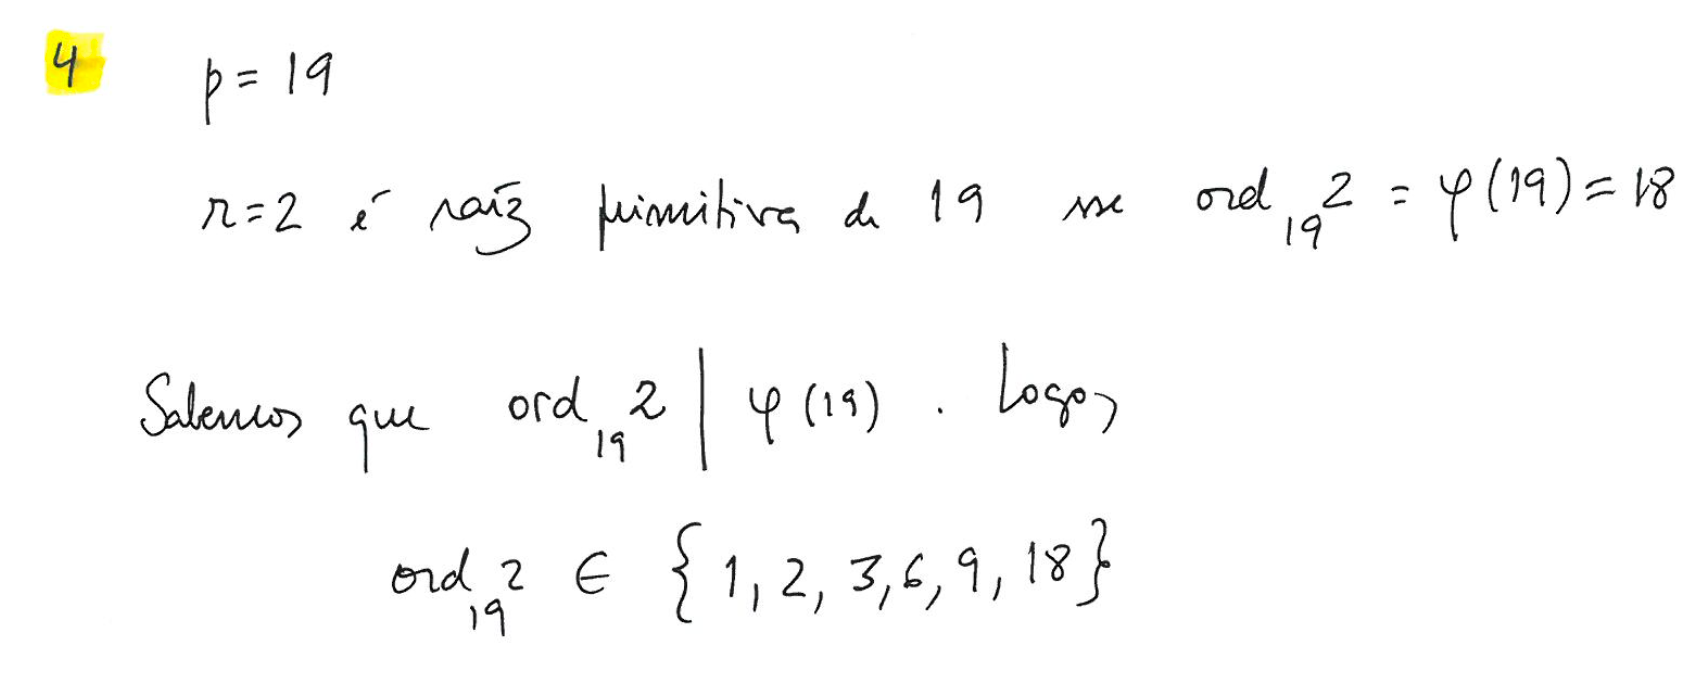 4 p = 19
r=2 é raíz primitiva de 19 sse ord₁₉2 = φ(19) = 18
Sabemos que ord₁₉2 | φ(19). Logo,
ord₁₉2 ∈ {1, 2, 3, 6, 9, 18}